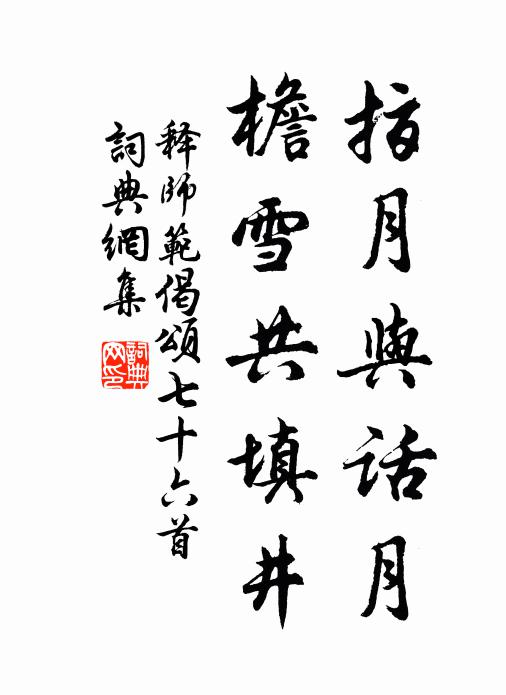 指月與話月
檐雪共填井
释師範偈頌七十六首
詞典網集
詞典网印